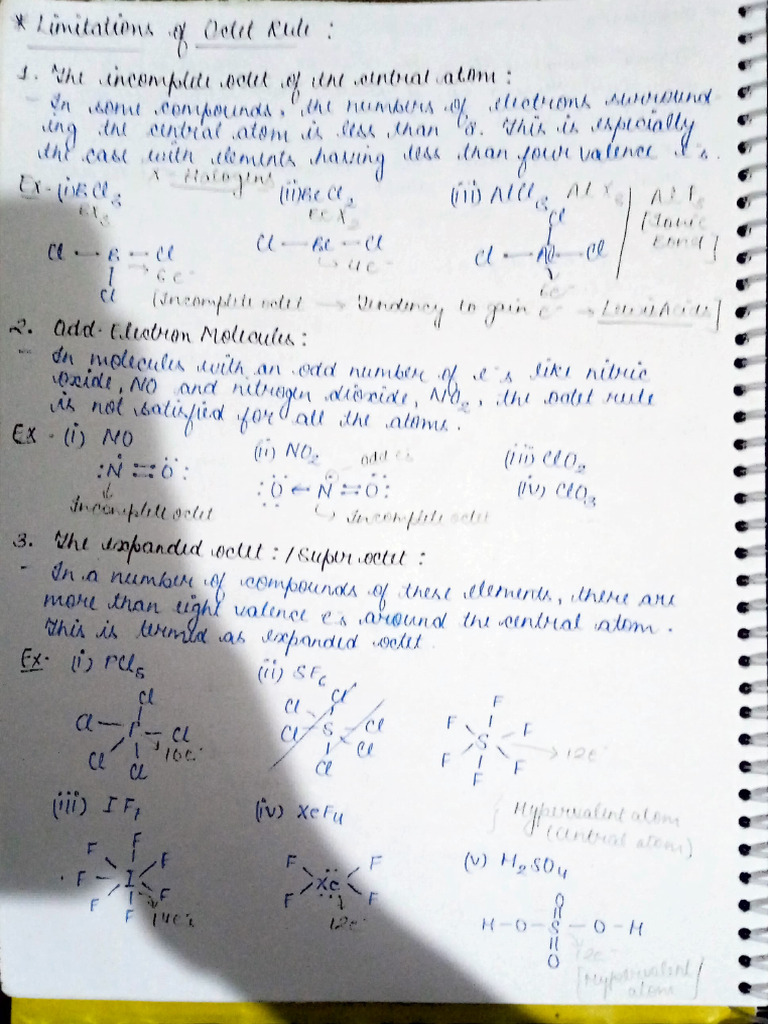 * Limitations of Octet Rule :
1. The incomplete octet of the central atom :
- In some compounds, the numbers of electrons surround-
ing the central atom is less than 8. This is especially
the case with elements having less than four valence e⁻s.
X - Halogens
Ex- (i) BCl₃ (ii) BeCl₂ (iii) AlCl₃ AlX₃ | AlF₃
BX₃ BeX₂ [Ionic
Bond]
Cl — B — Cl Cl — Be — Cl Cl — Al — Cl
Cl → 6e⁻ → 4e⁻ Cl 6e⁻
[Incomplete octet → Tendency to gain e⁻ → Lewis Acids]
2. Odd-Electron Molecules :
- In molecules with an odd number of e⁻s like nitric
oxide, NO and nitrogen dioxide, NO₂, the octet rule
is not satisfied for all the atoms.
Ex - (i) NO (ii) NO₂ (iii) ClO₂
odd e⁻s (iv) ClO₃
:N = O: :O ← N = O:
Incomplete octet → Incomplete octet
3. The expanded octet : / Super octet :
- In a number of compounds of these elements, there are
more than eight valence e⁻s around the central atom.
This is termed as expanded octet.
Ex- (i) PCl₅ (ii) SF₆
Cl Cl Cl Cl Cl P → 10e⁻
Cl Cl Cl Cl Cl Cl S
F F F F F F S → 12e⁻
(iii) IF₇ (iv) XeF₄ { Hypervalent atom
(Central atom)
F F F F F F F I 14e⁻s
F F F F Xe 12e⁻
(v) H₂SO₄
O
H — O — S — O — H
O 12e⁻
[Hypervalent
atom]